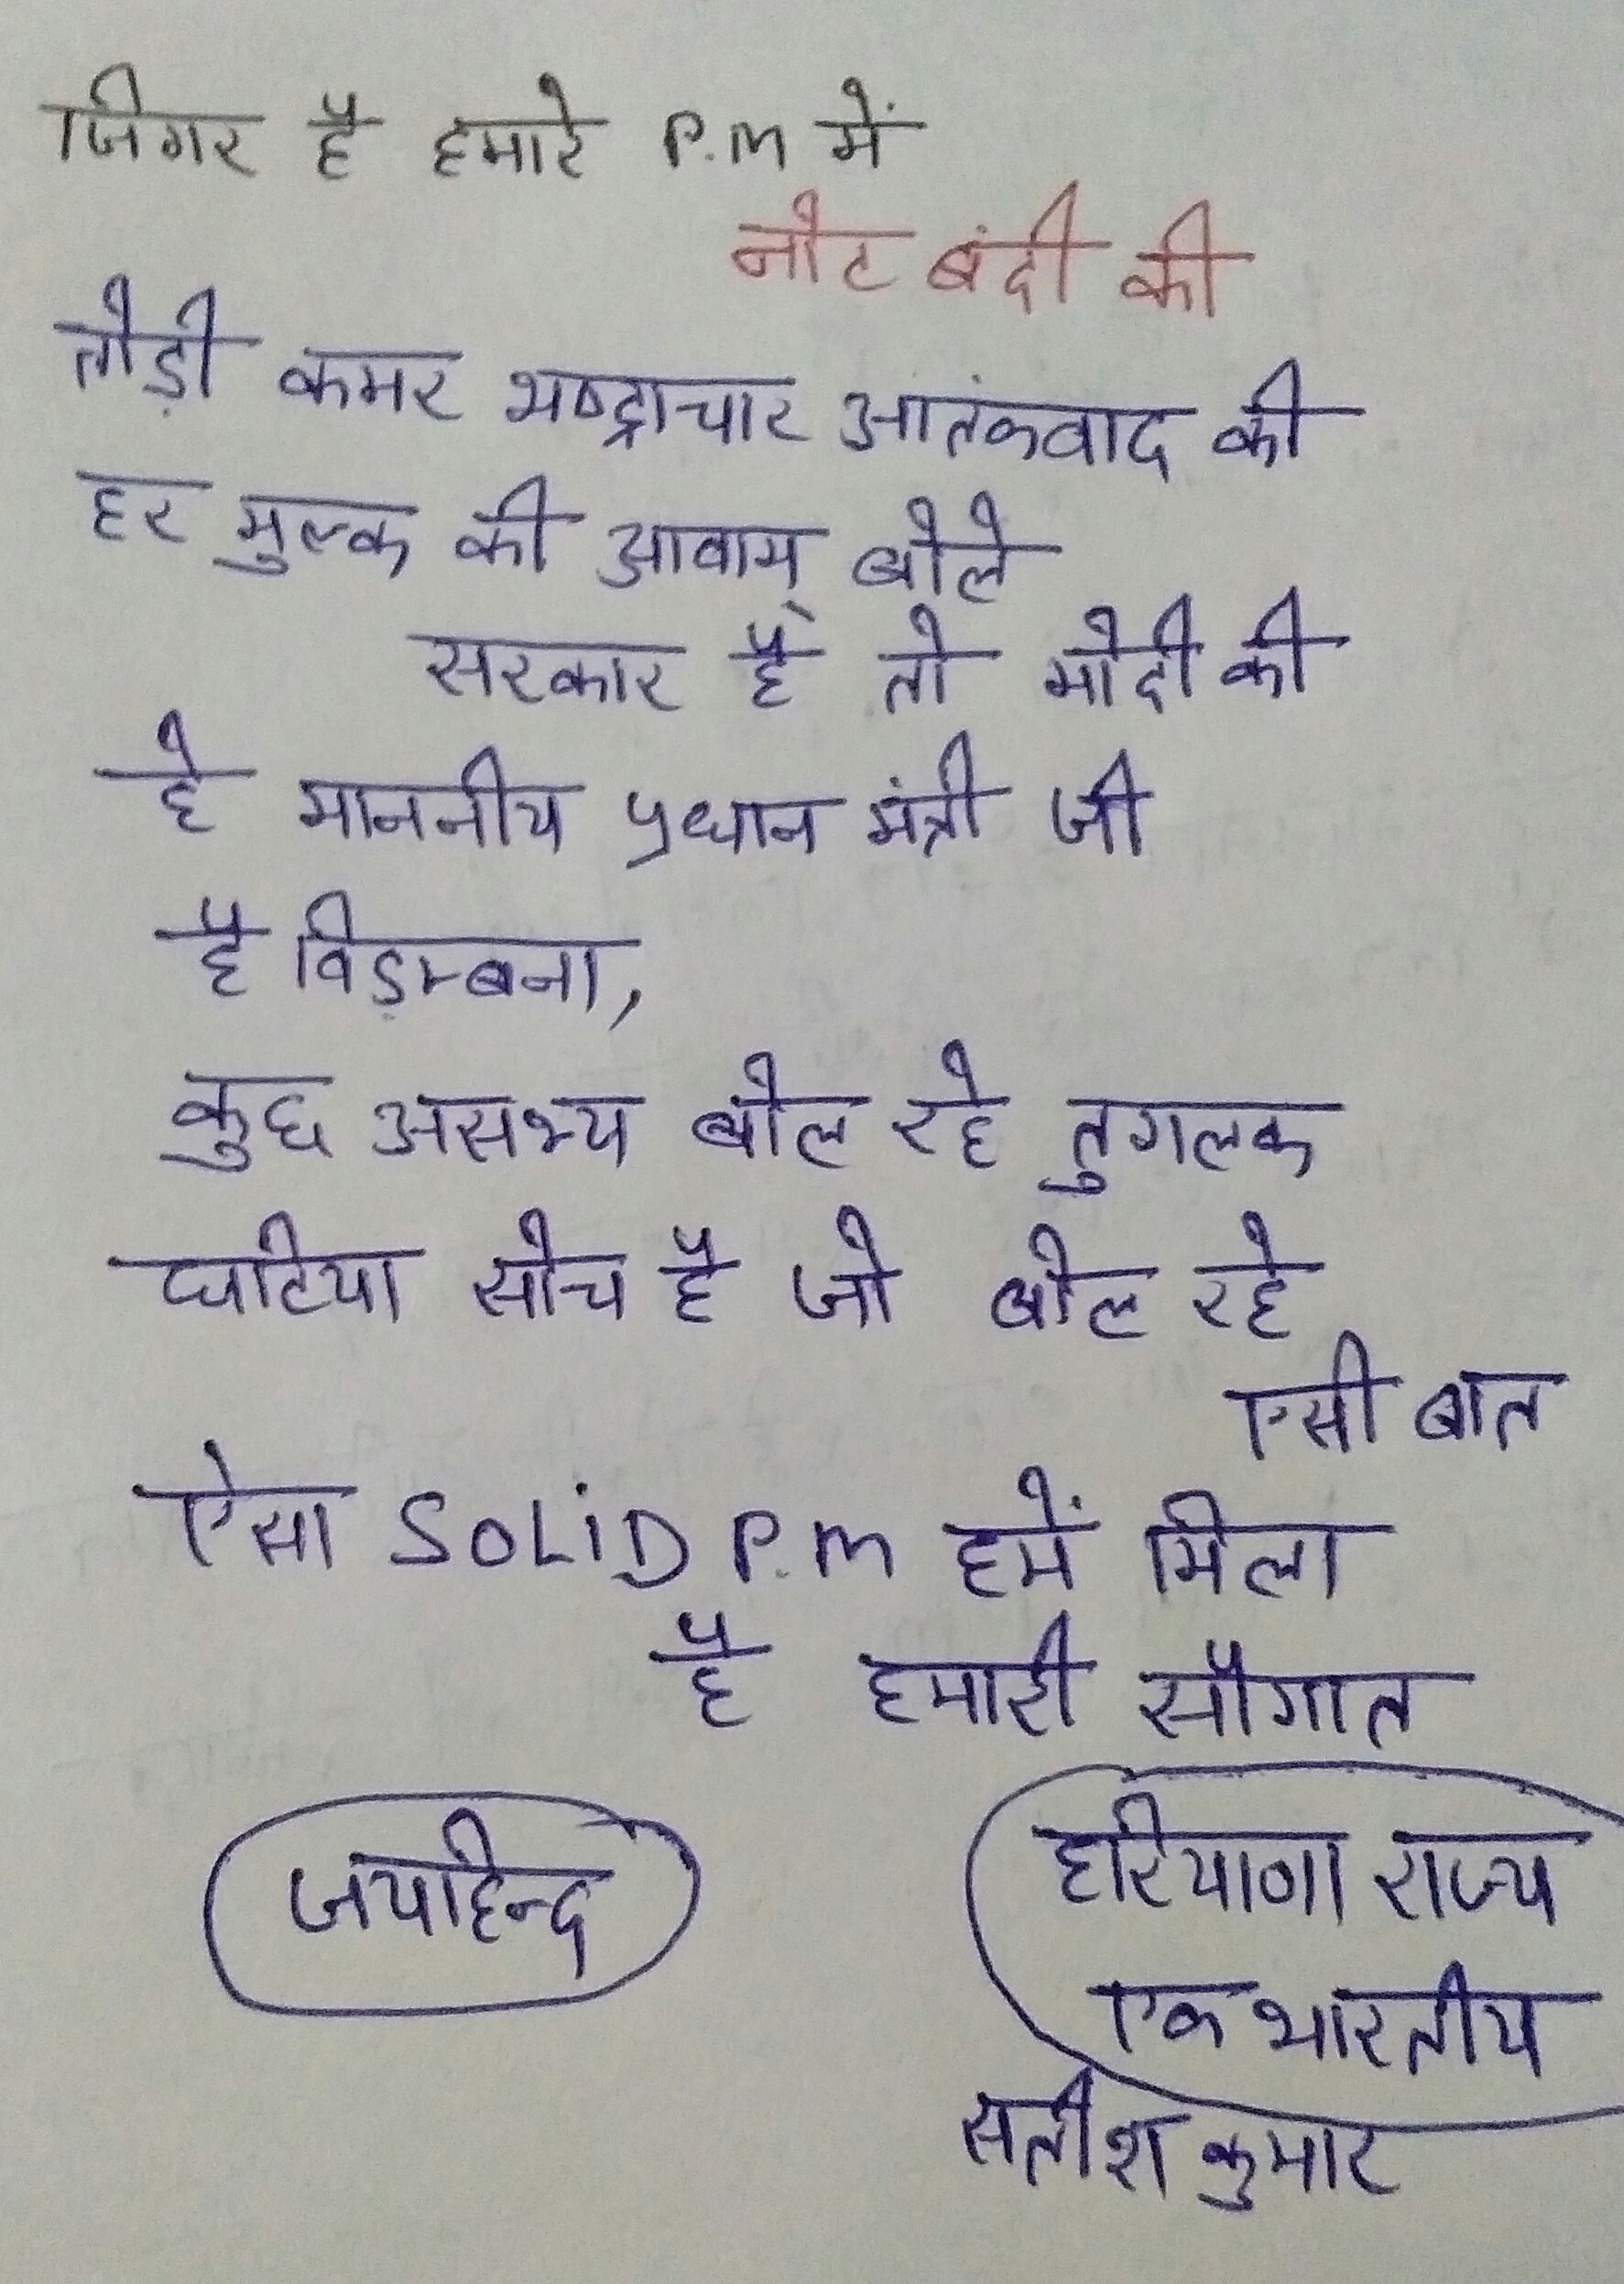 जिगर है हमारे P.M में
नोट बंदी की
तोड़ी कमर भष्ट्राचार आतंकवाद की
हर मुल्क की आवाम् बोले
सरकार है तो मोदी की
हे माननीय प्रधान मंत्री जी
है विड़म्बना,
कुछ असभ्य बोल रहे तुगलक
घटिया सोच है जो बोल रहे
एसी बात
ऐसा SOLiD P.M हमें मिला
है हमारी सौगात
जयहिन्द
हरियाणा राज्य
एक भारतीय
सतीश कुमार